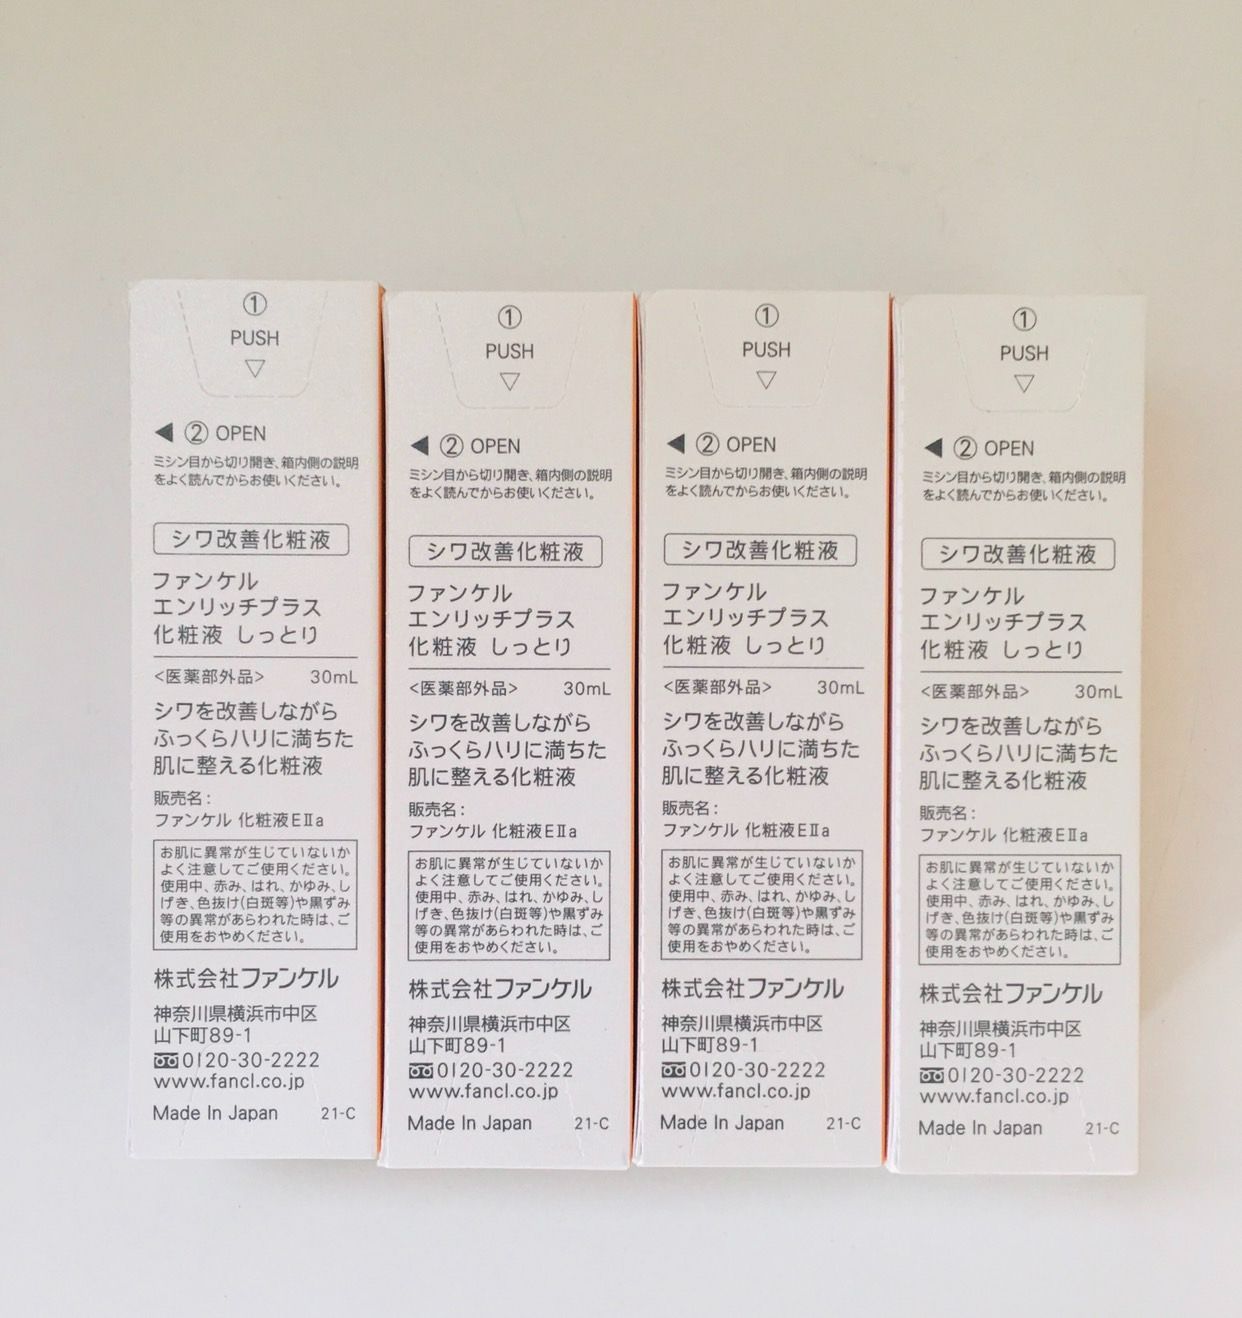 ①
PUSH
▽
◀ ② OPEN
ミシン目から切り開き、箱内側の説明
をよく読んでからお使いください。
シワ改善化粧液
ファンケル
エンリッチプラス
化粧液 しっとり
<医薬部外品> 30mL
シワを改善しながら
ふっくらハリに満ちた
肌に整える化粧液
販売名:
ファンケル 化粧液EⅡa
お肌に異常が生じていないか
よく注意してご使用ください。
使用中、赤み、はれ、かゆみ、し
げき、色抜け(白斑等)や黒ずみ
等の異常があらわれた時は、ご
使用をおやめください。
株式会社ファンケル
神奈川県横浜市中区
山下町89-1
0120-30-2222
www.fancl.co.jp
Made In Japan 21-C
①
PUSH
▽
◀ ② OPEN
ミシン目から切り開き、箱内側の説明
をよく読んでからお使いください。
シワ改善化粧液
ファンケル
エンリッチプラス
化粧液 しっとり
<医薬部外品> 30mL
シワを改善しながら
ふっくらハリに満ちた
肌に整える化粧液
販売名:
ファンケル 化粧液EⅡa
お肌に異常が生じていないか
よく注意してご使用ください。
使用中、赤み、はれ、かゆみ、し
げき、色抜け(白斑等)や黒ずみ
等の異常があらわれた時は、ご
使用をおやめください。
株式会社ファンケル
神奈川県横浜市中区
山下町89-1
0120-30-2222
www.fancl.co.jp
Made In Japan 21-C
①
PUSH
▽
◀ ② OPEN
ミシン目から切り開き、箱内側の説明
をよく読んでからお使いください。
シワ改善化粧液
ファンケル
エンリッチプラス
化粧液 しっとり
<医薬部外品> 30mL
シワを改善しながら
ふっくらハリに満ちた
肌に整える化粧液
販売名:
ファンケル 化粧液EⅡa
お肌に異常が生じていないか
よく注意してご使用ください。
使用中、赤み、はれ、かゆみ、し
げき、色抜け(白斑等)や黒ずみ
等の異常があらわれた時は、ご
使用をおやめください。
株式会社ファンケル
神奈川県横浜市中区
山下町89-1
0120-30-2222
www.fancl.co.jp
Made In Japan 21-C
①
PUSH
▽
◀ ② OPEN
ミシン目から切り開き、箱内側の説明
をよく読んでからお使いください。
シワ改善化粧液
ファンケル
エンリッチプラス
化粧液 しっとり
<医薬部外品> 30mL
シワを改善しながら
ふっくらハリに満ちた
肌に整える化粧液
販売名:
ファンケル 化粧液EⅡa
お肌に異常が生じていないか
よく注意してご使用ください。
使用中、赤み、はれ、かゆみ、し
げき、色抜け(白斑等)や黒ずみ
等の異常があらわれた時は、ご
使用をおやめください。
株式会社ファンケル
神奈川県横浜市中区
山下町89-1
0120-30-2222
www.fancl.co.jp
Made In Japan 21-C